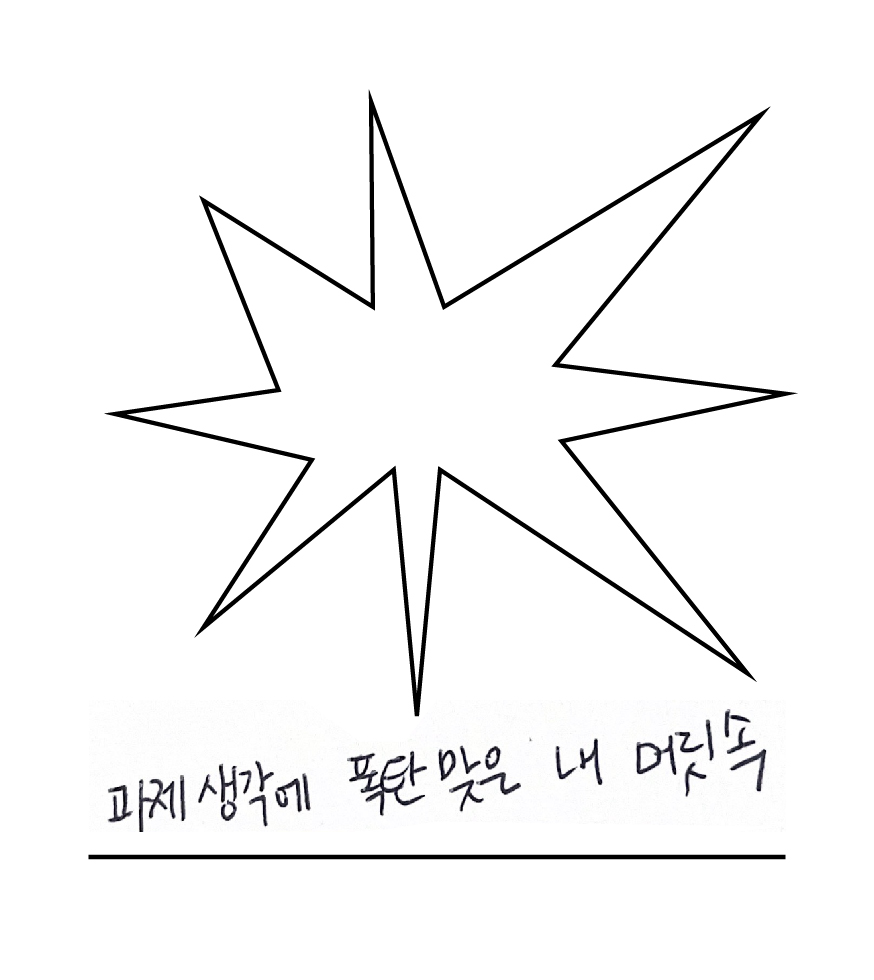 과제 생각에 폭탄 맞은 내 머릿속